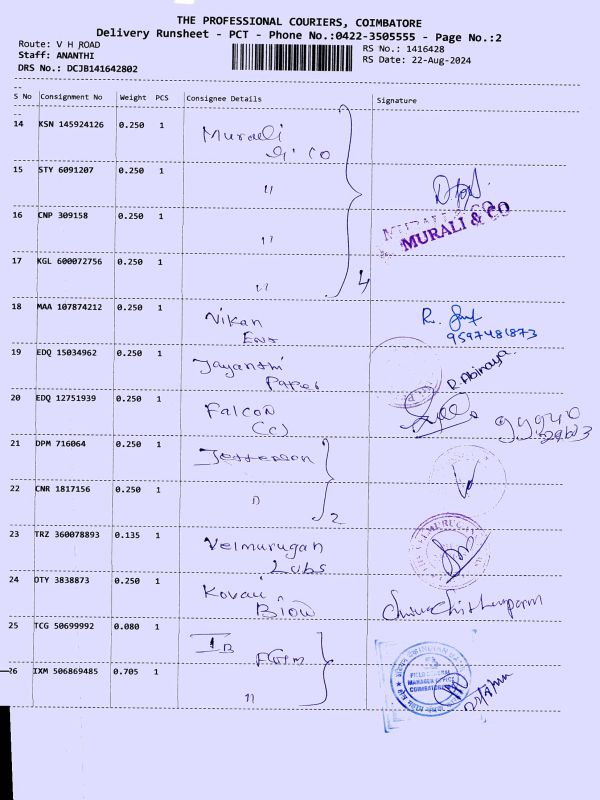 THE PROFESSIONAL COURIERS, COIMBATORE
Delivery Runsheet - PCT - Phone No.:0422-3505555 - Page No.:2
Route: V H ROAD
RS No.: 1416428
Staff: ANANTHI
RS Date: 22-Aug-2024
DRS No.: DCJB141642802
S No Consignment No Weight PCS Consignee Details Signature
14 KSN 145924126 0.250 1 Murali
G. Co
15 STY 6091207 0.250 1 "
16 CNP 309158 0.250 1 "
MURALI & CO
17 KGL 600072756 0.250 1 "
4
18 MAA 107874212 0.250 1 Nikan
Ent
9597481873
19 EDQ 15034962 0.250 1 Jayanthi
Paper
R. Abinaya
20 EDQ 12751939 0.250 1 Falcon
(C)
99940
21 DPM 716064 0.250 1 Jefferson
22 CNR 1817156 0.250 1 "
2
23 TRZ 360078893 0.135 1 Velmurugan
Lubs
24 OTY 3838873 0.250 1 Kovai
Blow
25 TCG 50699992 0.080 1 IB
FGM
INDIAN BANK
FIELD GENERAL
MANAGER OFFICE
COIMBATORE
26 IXM 506869485 0.705 1 "